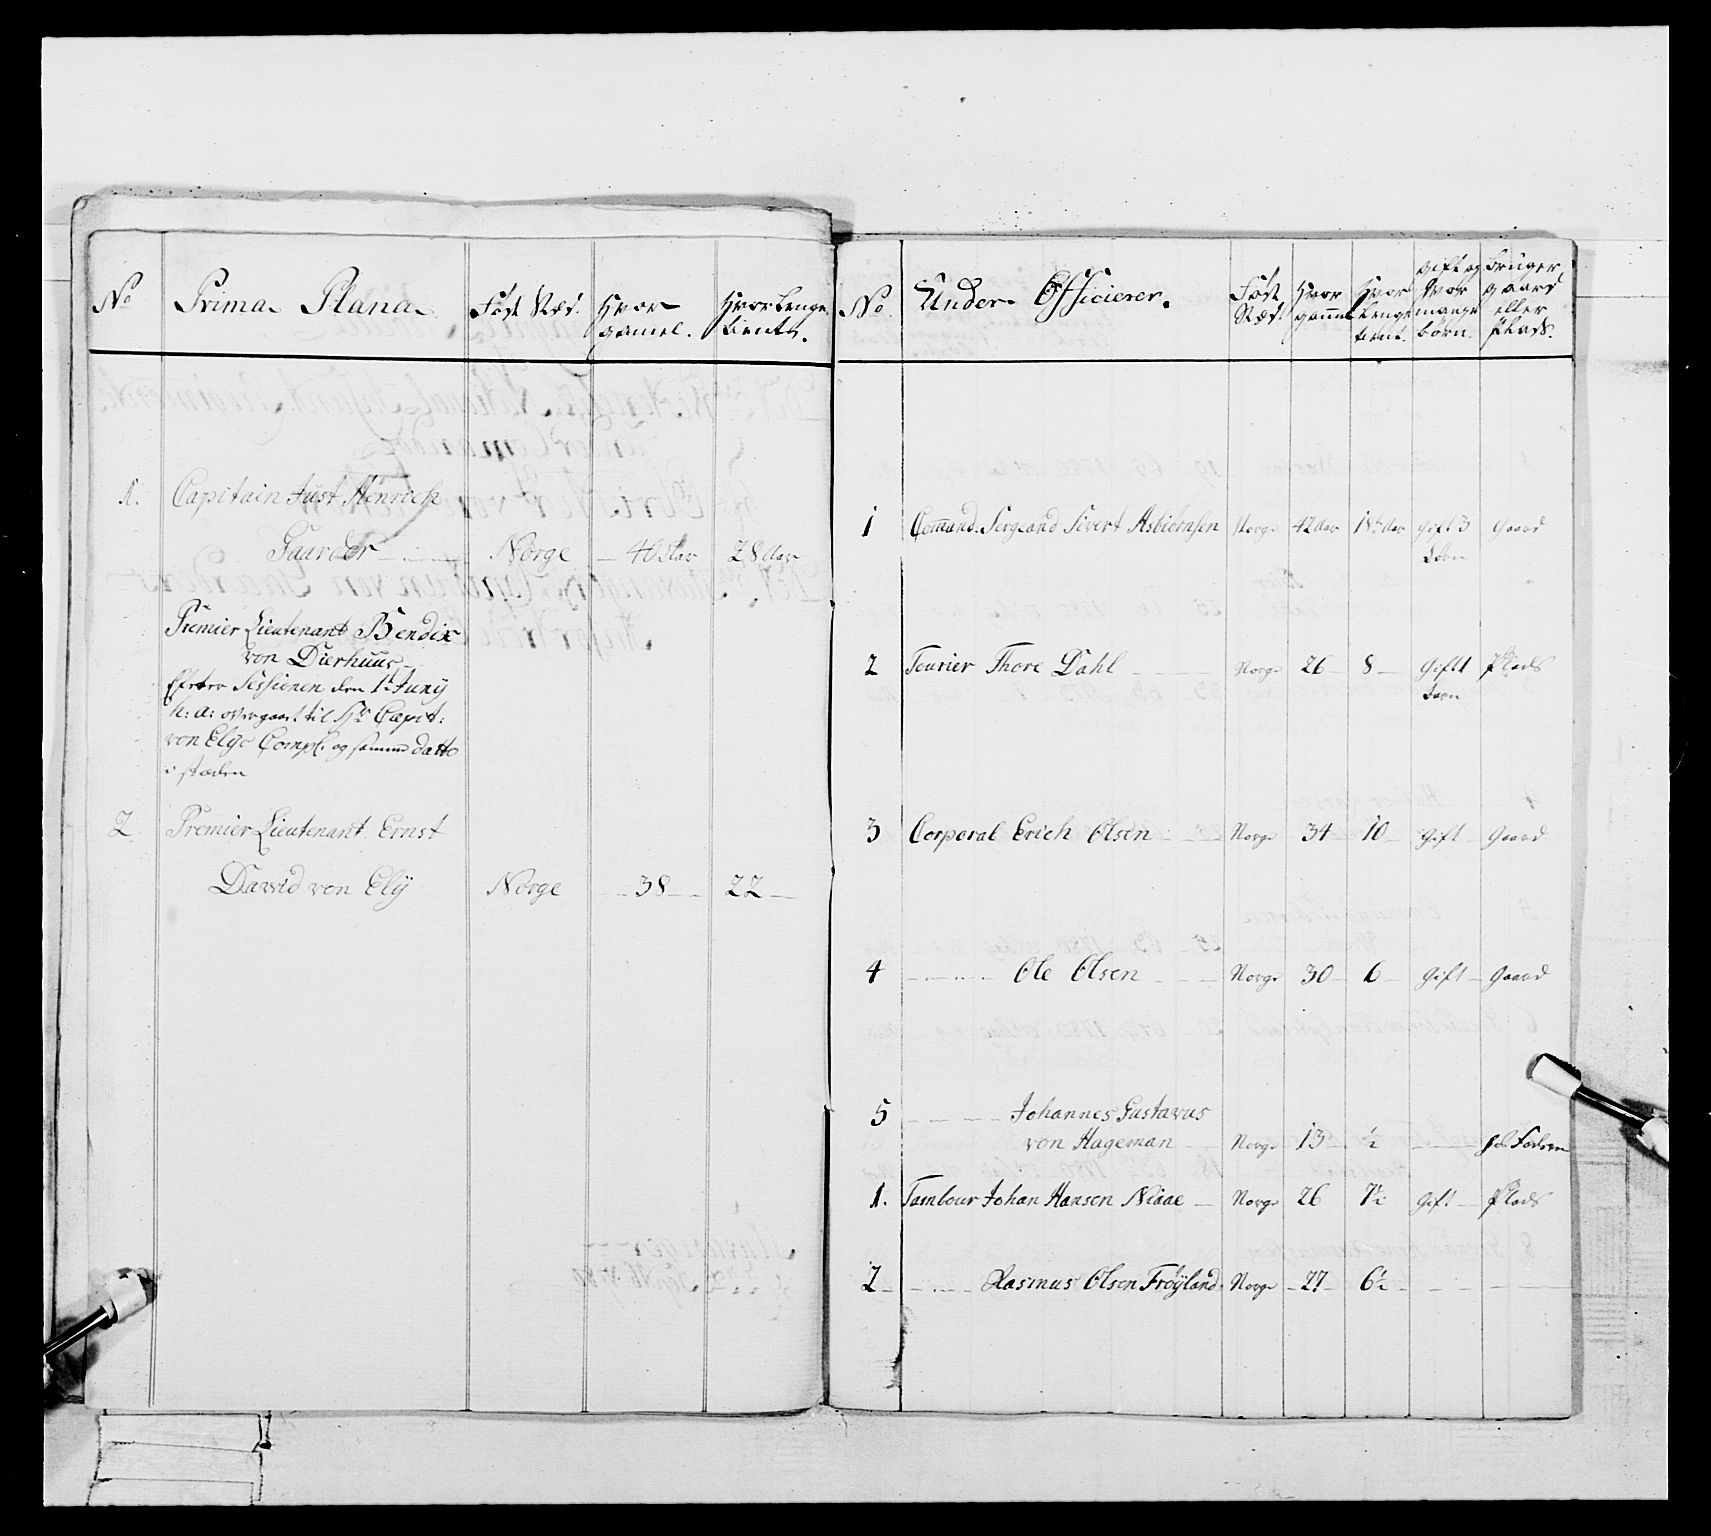 No
Prima Plana
Född Stæd.
Hvor
gamel.
Hvor Lenge
tient.
1.
Capitain Just Henrich
Gaarder
Norge
40 Aar
28 Aar
Premier Lieutenant Bendix
von Dierhuus
Efter Sessionen den 1te Juny
h: a: overgaaet til Hr Capit:
von Elys Comp: og samme datto
i stæden
2
Premier Lieutenant Ernst
David von Elÿ
Norge
38
22
No.
Under Officierer.
Född
Stæd.
Hvor
gamel
Hvor
Lenge
tient.
Gift og
hvor
mange
börn.
Bruger
gaard
eller
Plads.
1
Command. Sergeand Sivert Asbiörnsen
Norge
42 Aar
18 Aar
Gift 3
börn
Gaard
2
Fourier Thore Dahl
Norge
26
8
Gift 1
barn
Plads
3
Corporal Erich Olsen
Norge
34
10
Gift
Gaard
4
Ole Olsen
Norge
30
6
Gift
Gaard
5
Johannes Gustavus
von Hageman
Norge
13
½
Faderen
1.
Tambour Johan Hansen Niaae
Norge
26
7½
Gift
Plads
2
Rasmus Olsen Fröÿland
Norge
27
6½